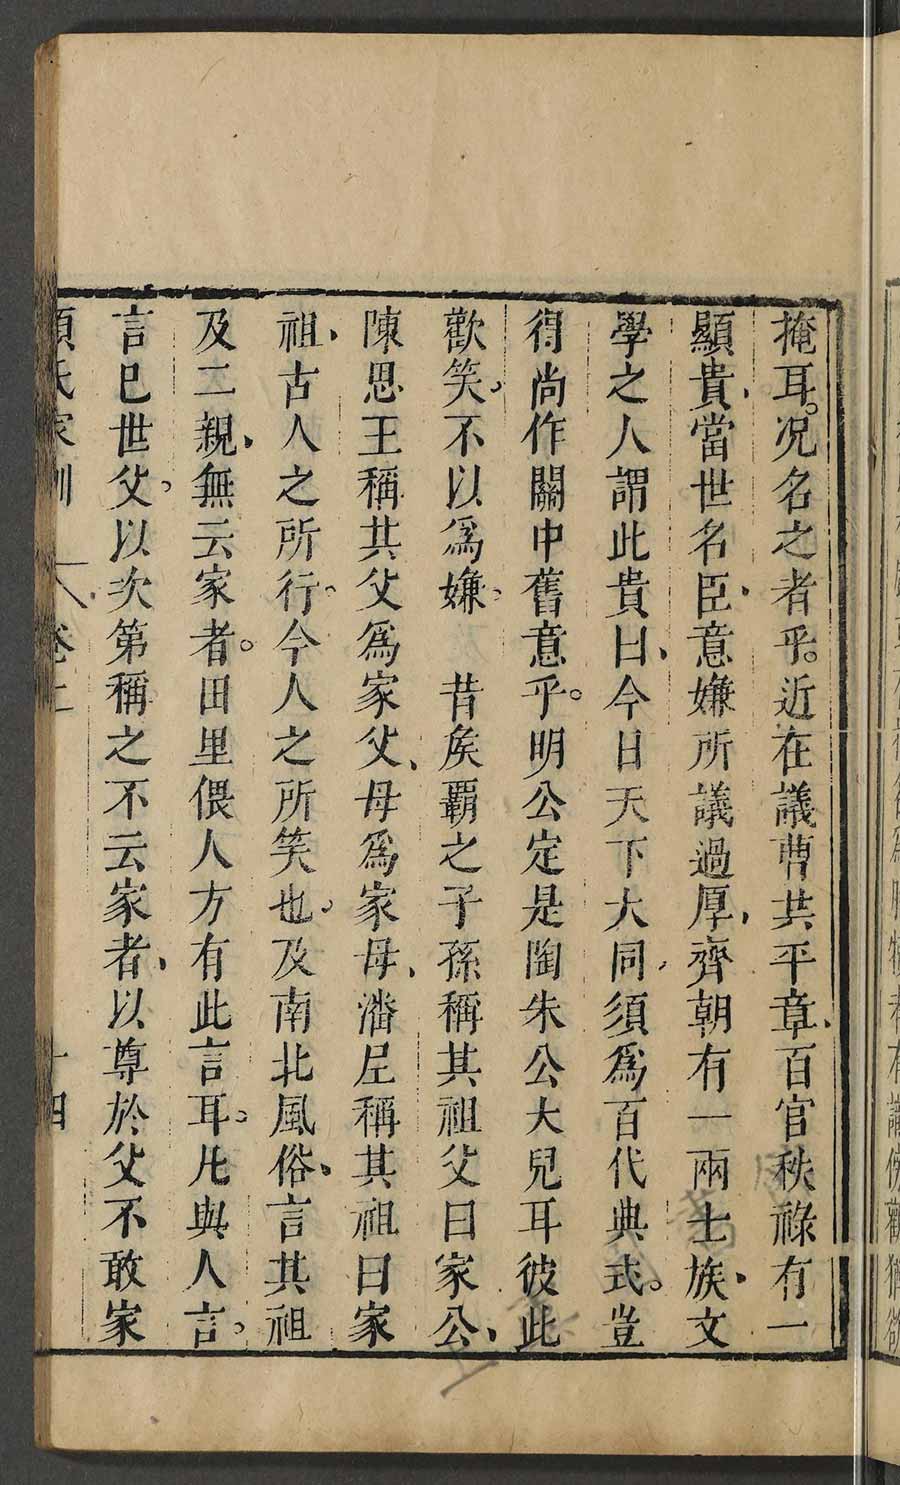 掩耳。况名之者乎。近在議曹共平章、百官秩祿有一
顯貴、當世名臣、意嫌所議過厚、齊朝有一兩士族、文
學之人謂此貴曰、今日天下大同、須爲百代典式。豈
得尚作關中舊意乎。明公定是陶朱公大兒耳彼此
歡笑。不以爲嫌。　昔矦霸之子孫稱其祖父曰家公、
陳思王稱其父爲家父、母爲家母、潘尼稱其祖曰家
祖、古人之所行。今人之所笑也。及南北風俗、言其祖
及二親、無云家者。田里偎人方有此言耳。凡與人言。
言巳世父。以次第稱之不云家者、以尊於父不敢家
顏氏家訓　卷上　十四